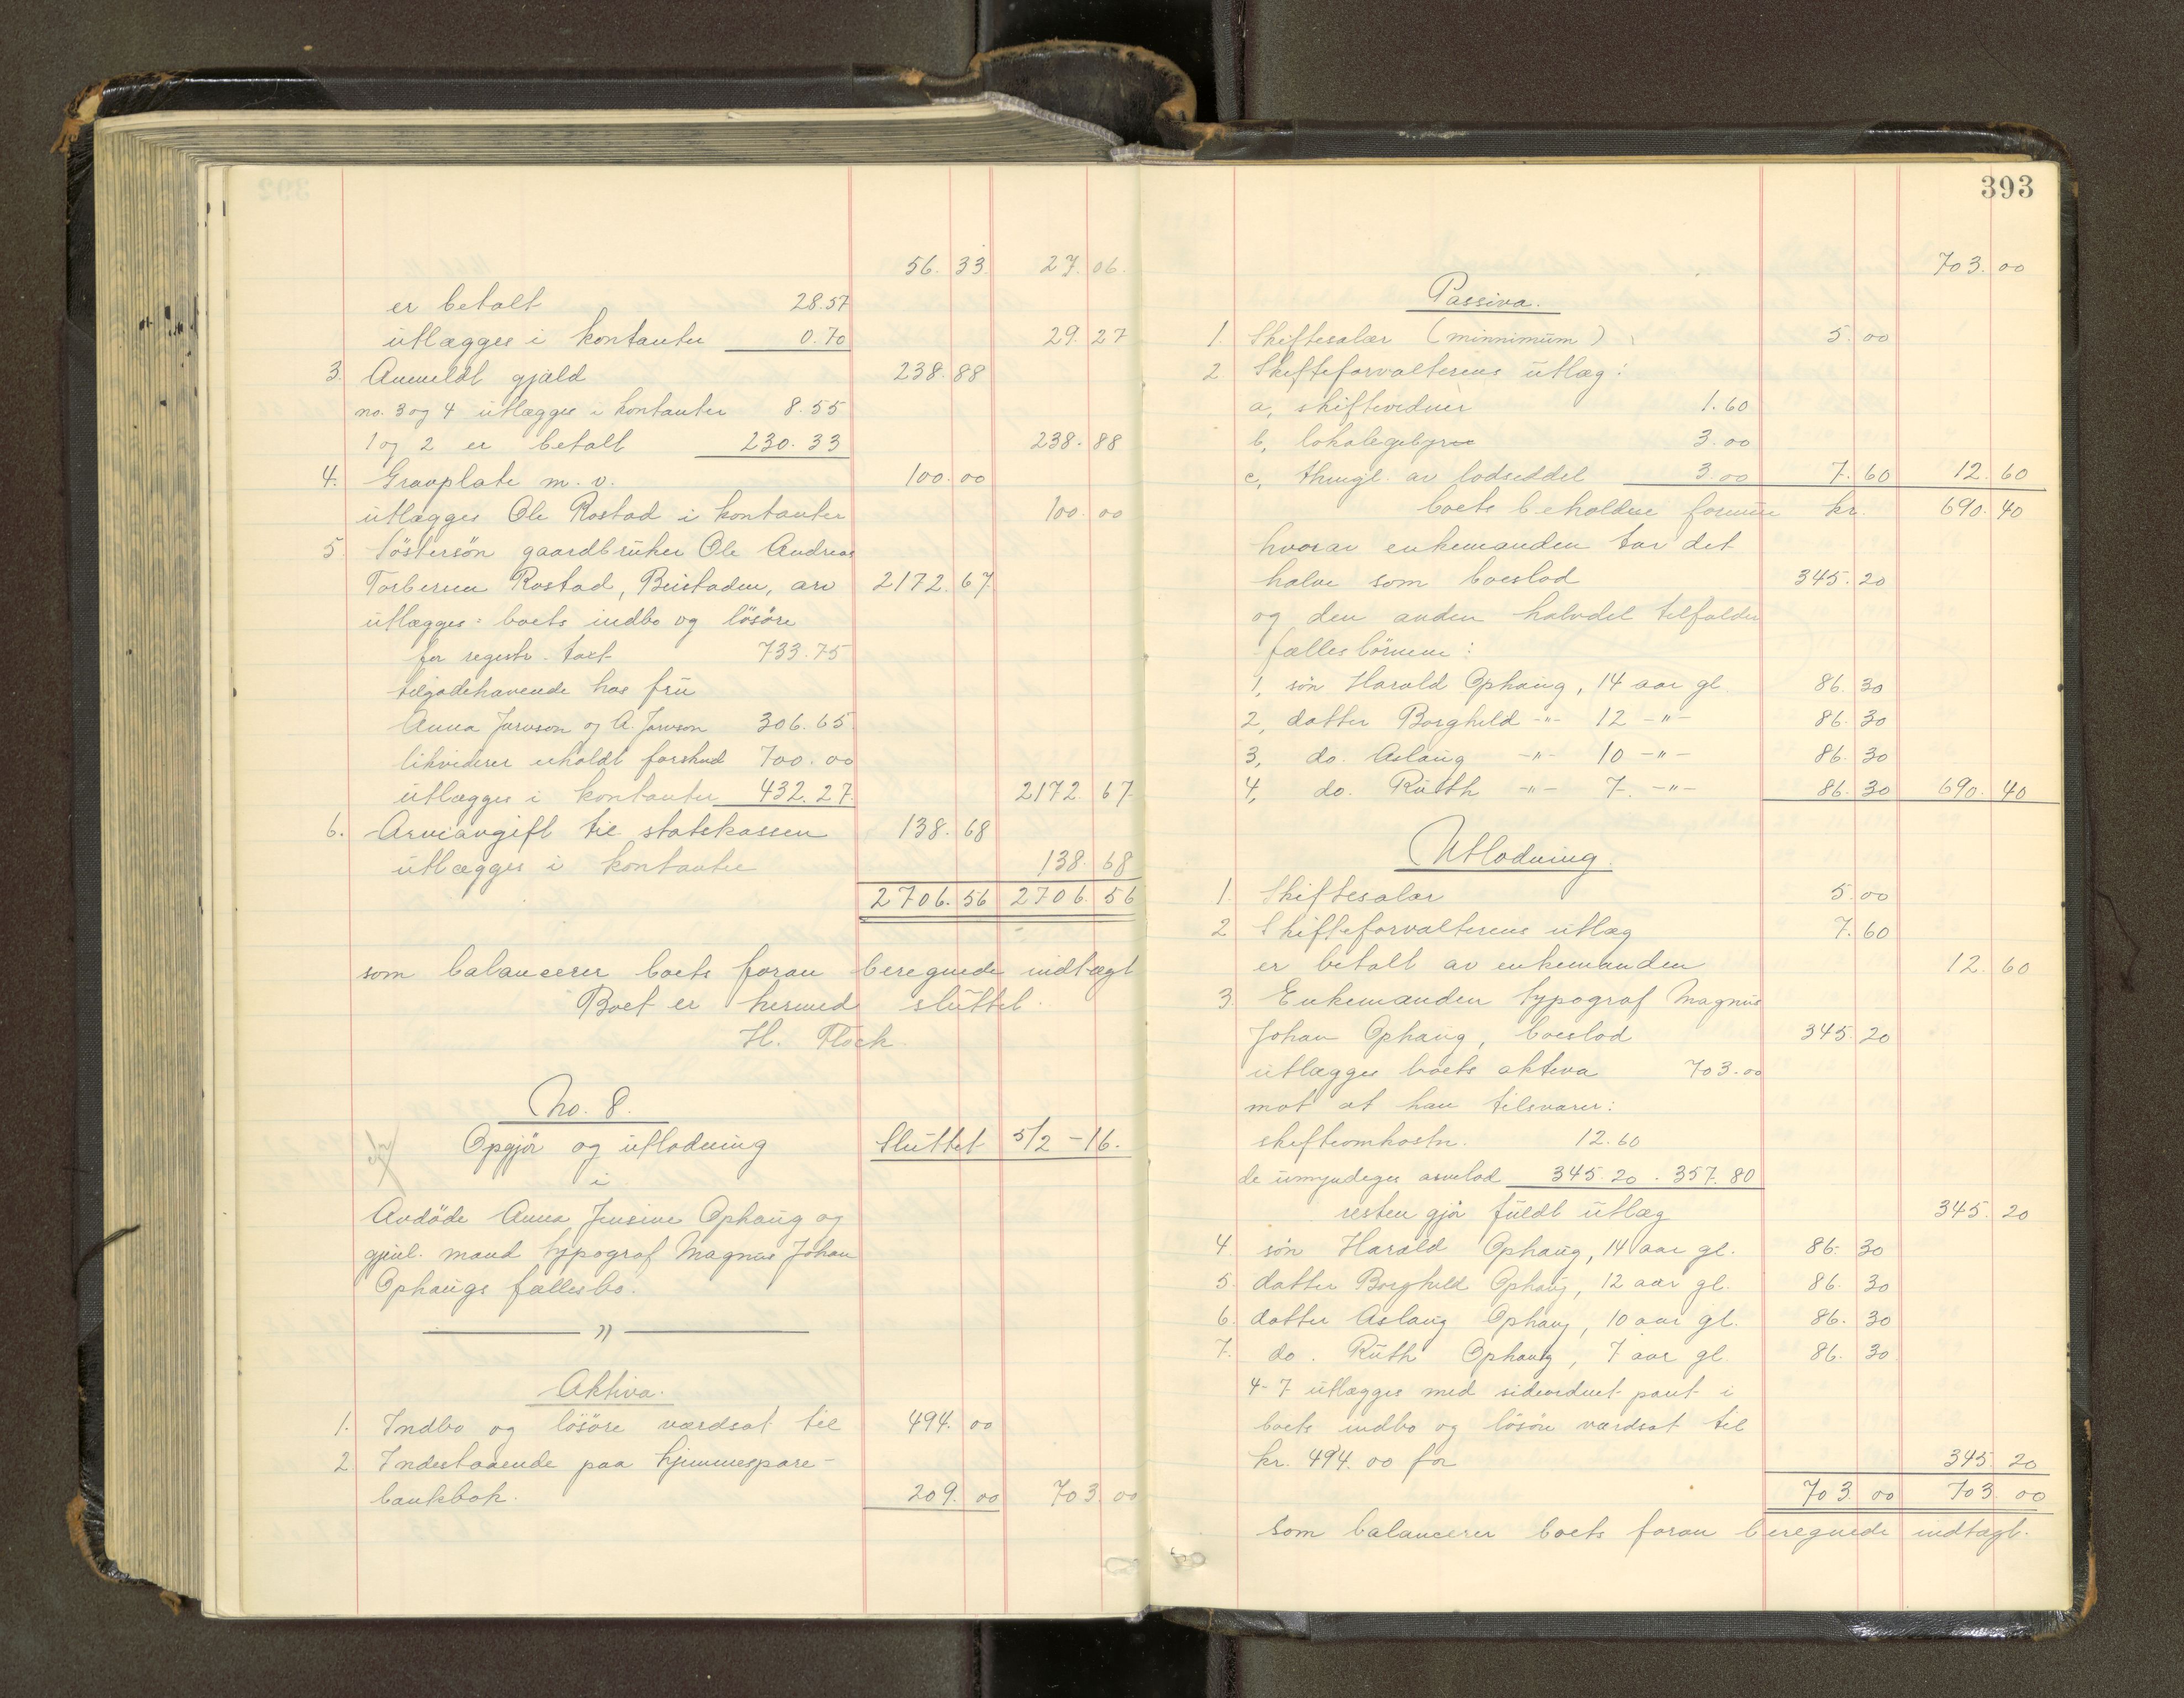 56. 33. 27. 06.
er betalt 28.57
utlægges i kontanter 0.70 29. 27
3. Anmeldt gjæld 238. 88
no. 3 og 4 utlægges i kontanter 8.55
1 og 2 er betalt 230.33 238. 88
4. Gravplate m. v. 100. 00
utlægges Ole Rostad i kontanter 100. 00
5. Söstersön gaardbruker Ole Andreas
Torbersen Rostad, Beistaden, arv 2172. 67
utlægges: boets indbo og lösöre
for registr. taxt 733.75
tilgodehavende hos fru
Anna Jarvson og A. Jarvson 306.65
likviderer erholdt forskud 700.00
utlægges i kontanter 432.27 2172. 67
6. Arveavgift til statskassen 138. 68
utlægges i kontanter 138. 68
2706. 56 2706. 56
som balancerer boets foran beregnede indtægt
Boet er hermed sluttet.
H. Flock
No. 8.
Opgjör og utlodning Sluttet 5/2 - 16.
i
Avdöde Anna Jensine Ophaug og
gjenl. mand typograf Magnus Johan
Ophaugs fællesbo.
— " —
Aktiva.
1. Indbo og lösöre værdsat til 494. 00
2. Indestaaende paa hjemmespare-
bankbok. 209. 00 703. 00
393
703. 00
Passiva.
1. Skiftesalær (minnimum) 5. 00
2. Skifteforvalterens utlæg:
a, skiftevidner 1.60
b, lokalegebyr 3.00
c, thingl. av lodseddel 3.00 7. 60 12. 60
boets beholdne formue kr. 690. 40
hvorav enkemanden tar det
halve som boeslod 345. 20
og den anden halvdel tilfalder
fællesbörnene:
1, sön Harald Ophaug, 14 aar gl. 86. 30
2, datter Borghild -"- 12 -"- 86. 30
3, do. Aslaug -"- 10 -"- 86. 30
4, do. Ruth -"- 7. -"- 86. 30 690. 40
Utlodning.
1. Skiftesalær 5. 00
2. Skifteforvalterens utlæg 7. 60
er betalt av enkemanden 12. 60
3. Enkemanden typograf Magnus
Johan Ophaug, boeslod 345. 20
utlægges boets aktiva 703.00
mot at han tilsvarer:
skifteomkostn. 12.60
de umyndiges arvelod 345.20. 357.80
resten gjör fuldt utlæg 345. 20
4. sön Harald Ophaug, 14 aar gl. 86. 30
5. datter Borghild Ophaug, 12 aar gl. 86. 30
6. datter Aslaug Ophaug, 10 aar gl. 86. 30
7. do. Ruth Ophaug, 7 aar gl. 86. 30
4-7 utlægges med sideordnet pant i
boets indbo og lösöre værdsat til
kr. 494.00 for 345. 20
703. 00 703. 00
som balancerer boets foran beregnede indtægt.